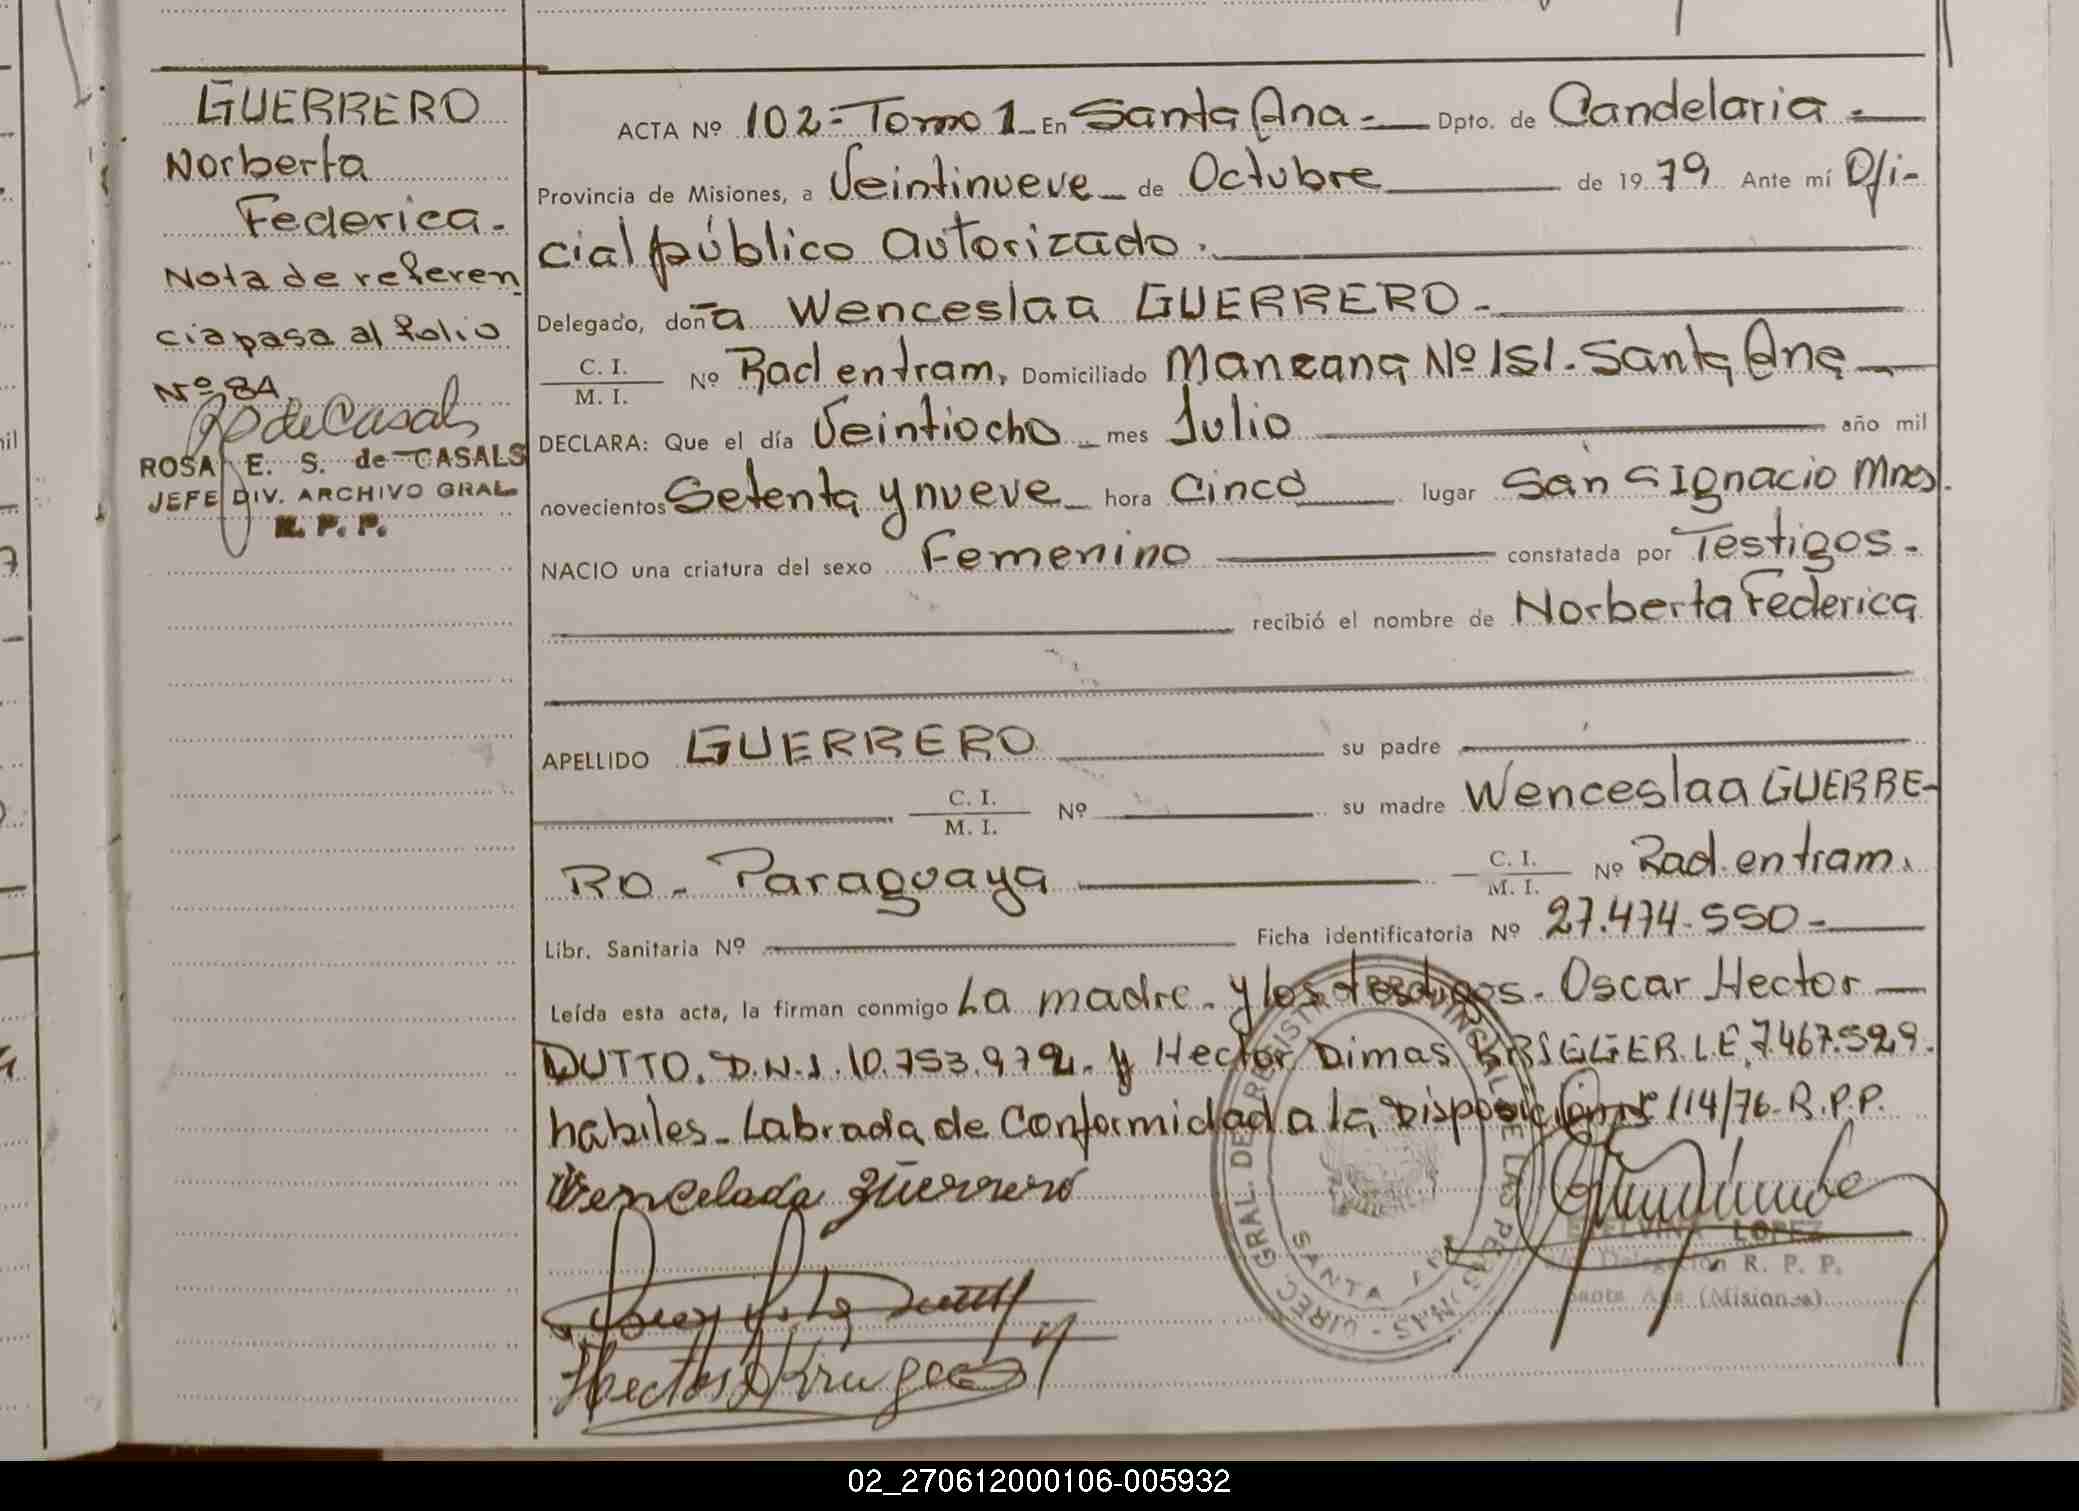 GUERRERO
Norberta
Federica.
Nota de referen
cia pasa al folio
Nº 84
ROSA E. S. de CASALS
JEFE DIV. ARCHIVO GRAL
R. P. P.
ACTA Nº 102-Tomo 1 En Santa Ana.- Dpto. de Candelaria.-
Provincia de Misiones, a Veintinueve de Octubre de 1979 Ante mí Ofi-
cial público autorizado.
Delegado, doña Wenceslaa GUERRERO.-
C. I.
M. I. Nº Rad en tram. Domiciliado Manzana Nº 151. Santa Ana
DECLARA: Que el día Veintiocho mes Julio año mil
novecientos Setenta y nueve hora Cinco lugar San Ignacio Mnes.
NACIO una criatura del sexo Femenino constatada por Testigos.-
recibió el nombre de Norberta Federica
APELLIDO GUERRERO su padre
C. I.
M. I. Nº su madre Wenceslaa GUERRE-
RO - Paraguaya C. I.
M. I. Nº Rad. en tram.
Libr. Sanitaria Nº Ficha identificatoria Nº 27.474.550-
Leída esta acta, la firman conmigo La madre. y los testigos. Oscar Hector
DUTTO. D.N.I. 10.753.972. y Hector Dimas L.E. 7.467.529.
habiles. Labrada de Conformidad a la Disposición Nº 114/76- R.P.P.
Vencelada guerrero
DIREC. GRAL. DE REGISTRO PROVINCIAL DE LAS PERSONAS
SANTA ANA
LOPEZ
Delegación R. P. P.
Santa Ana (Misiones)
02_270612000106-005932